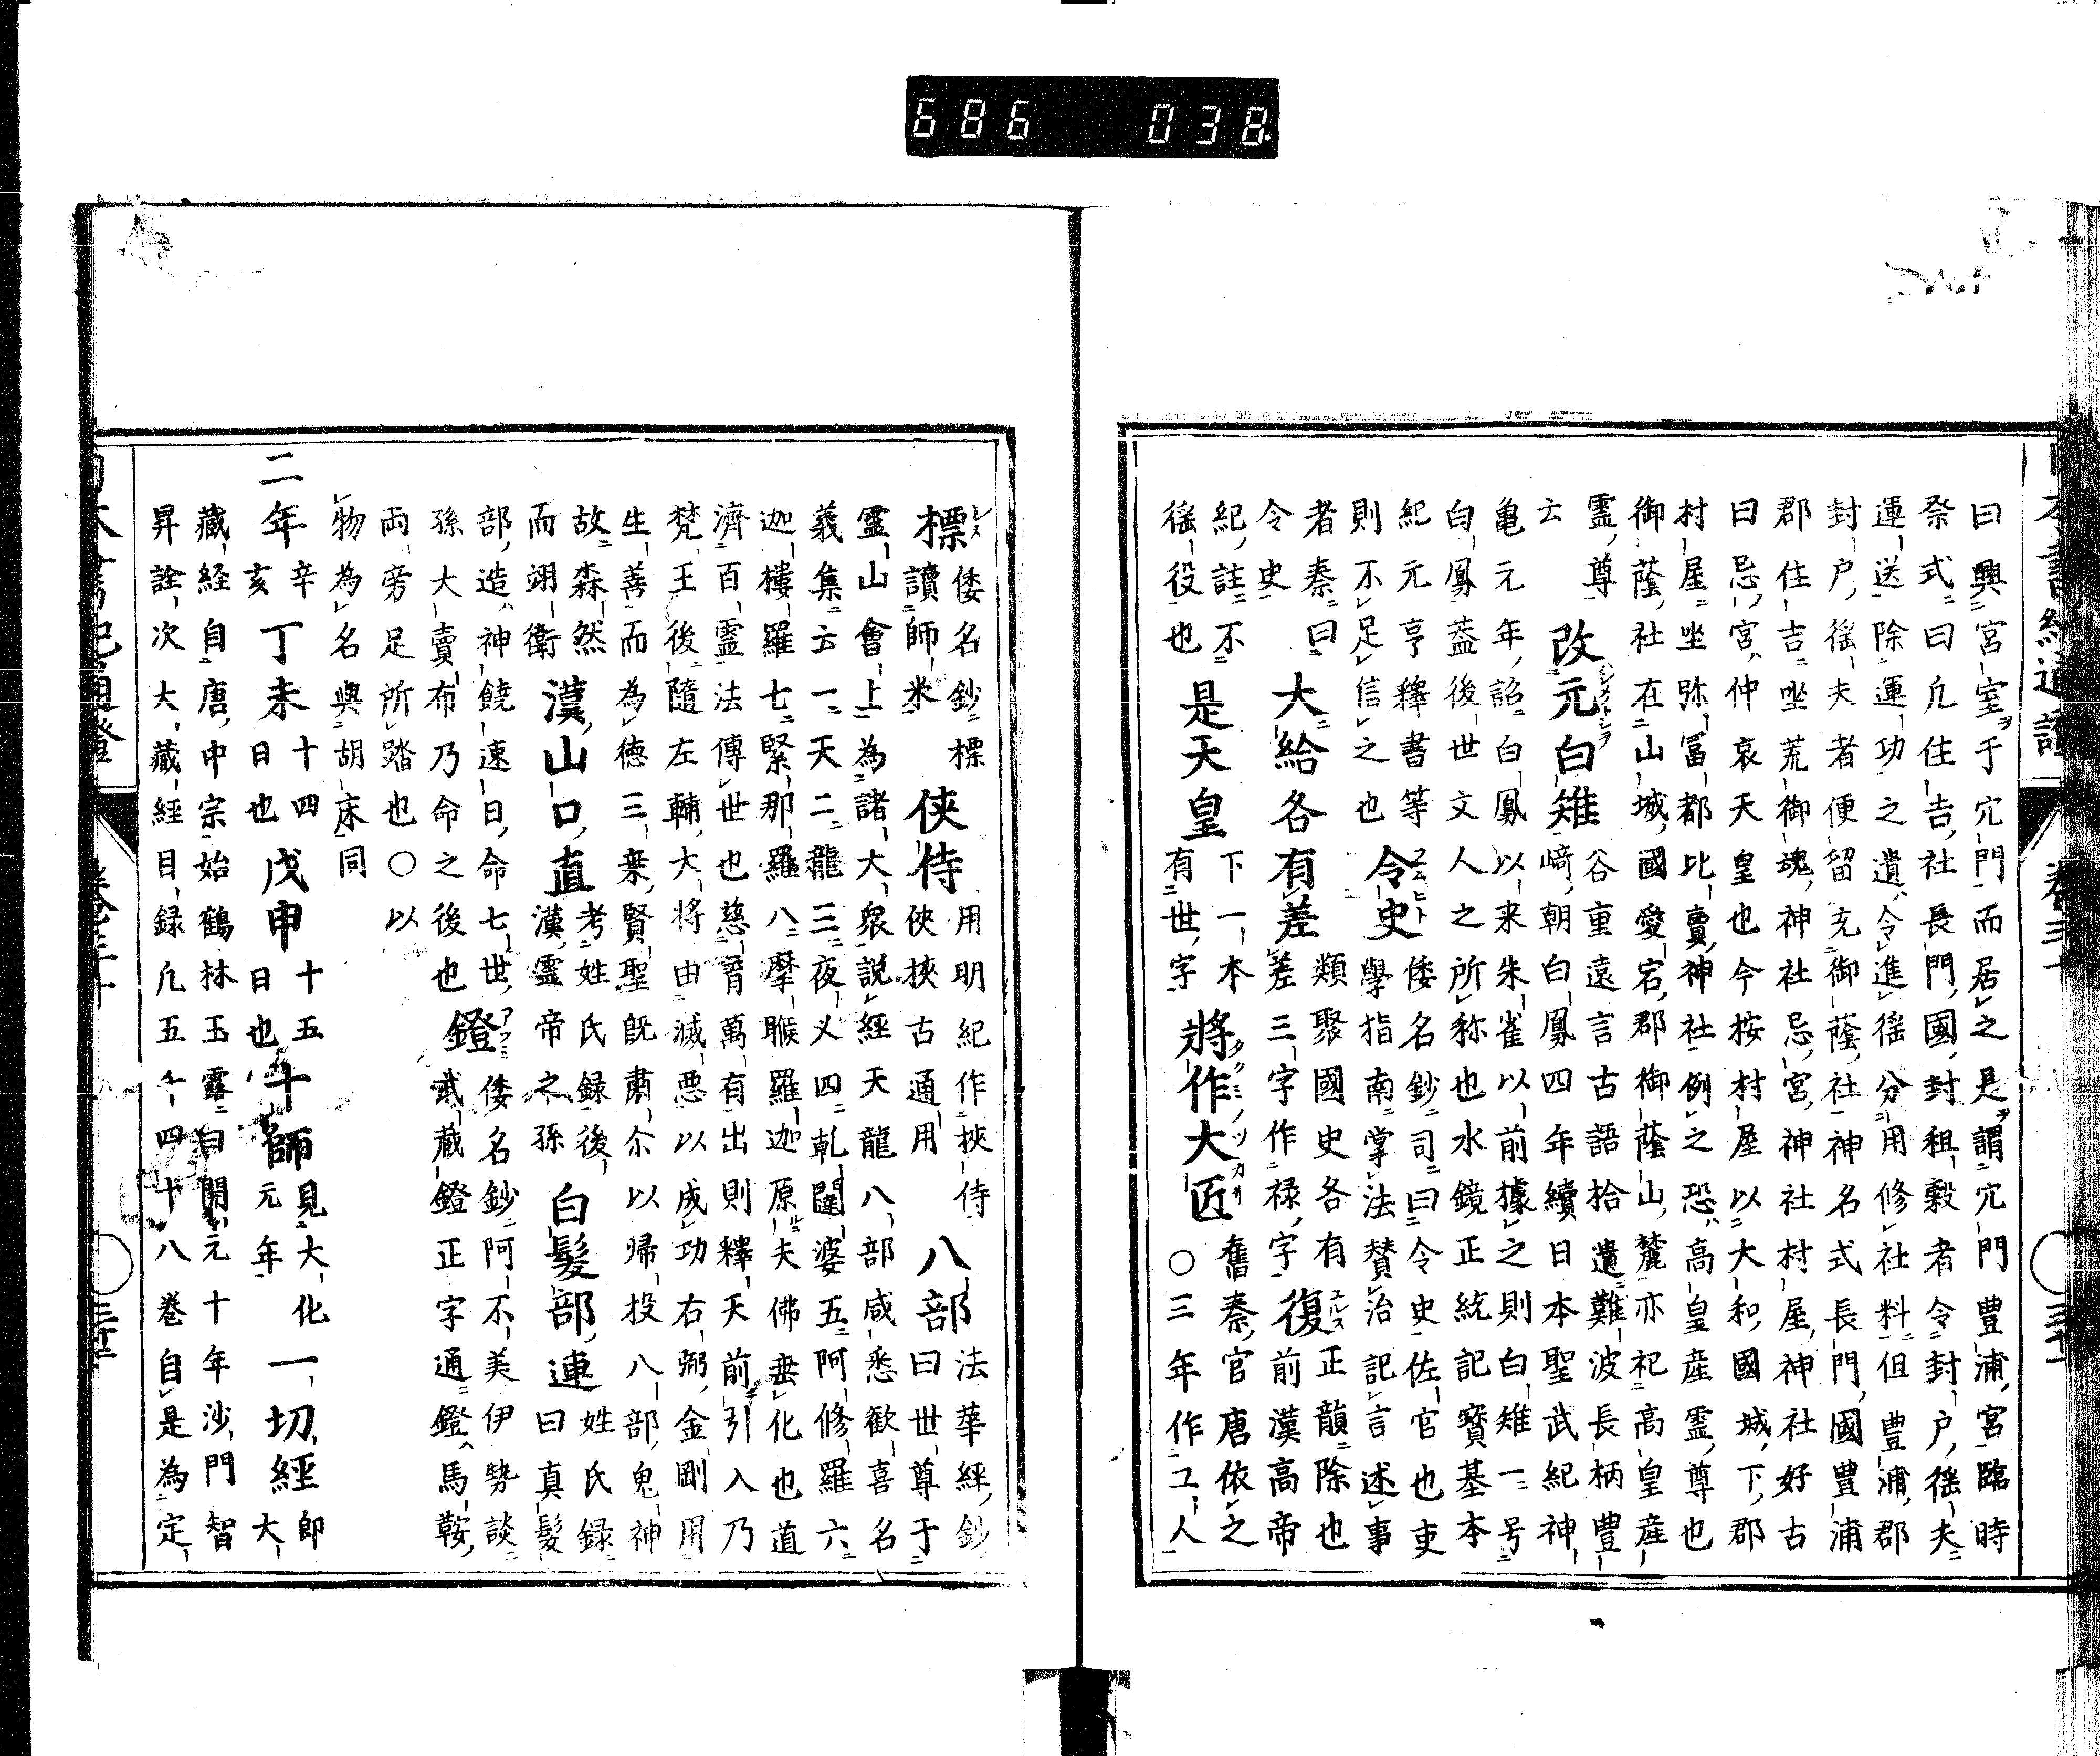 686 038
曰興宮室于穴門而居之是謂穴門豊浦宮臨時
祭式曰凡住吉社長門國封租穀者令封戸徭夫
運送除運功之遺令進徭分用修社料但豊浦郡
封戸徭夫者便留充御蔭社神名式長門國豊浦
郡住吉坐荒御魂神社忌宮神社村屋神社好古
曰忌宮仲哀天皇也今按村屋以大和國城下郡
村屋坐弥冨都比賣神社例之恐高皇産霊尊也
御蔭社在山城國愛宕郡御蔭山麓亦祀高皇産
霊尊
改元白雉﨑谷重遠言古語拾遺難波長柄豊
云朝白鳳四年續日本聖武紀神
亀元年詔白鳳以来朱雀以前據之則白雉一号
白鳳葢後世文人之所称也水鏡正統記寳基本
紀元亨釋書等
則不足信之也
令史倭名鈔司曰令史佐官也吏
學指南掌法賛治記言述事
者秦曰
令史
大給各有差類聚國史各有
差三字作禄字
復正韻除也
前漢高帝
紀註不
徭役也
是天皇下一本
有世字
將作大匠舊秦官唐依之
○三年作工人
標倭名鈔標
讀師米
俠侍用明紀作挾侍
俠挾古通用
八部法華經鈔
曰世尊于
霊山會上為諸大衆説經天龍八部咸悉歓喜名
義集云一天二龍三夜乂四乹闥婆五阿修羅六
迦樓羅七緊那羅八摩睺羅迦原夫佛垂化也道
濟百霊法傳世也慈育萬有出則釋天前引入乃
梵王後隨左輔大将由滅悪以成功右弼金剛用
生善而為徳三乗賢聖既肅尓以帰投八部鬼神
故森然
而翊衛
漢山口直考姓氏録後
漢霊帝之孫
白髪部連姓氏録
曰真髪
部造神饒速日命七世
孫大賣布乃命之後也
鐙倭名鈔阿不美伊勢談
武蔵鐙正字通鐙馬鞍
両旁足所踏也○以
物為名與胡床同
二年辛
亥
丁未十四
日也
戊申十五
日也
千師見大化
元年
一切經即
大
藏経自唐中宗始鶴林玉露曰開元十年沙門智
昇詮次大藏經目録凢五千四十八巻自是為定